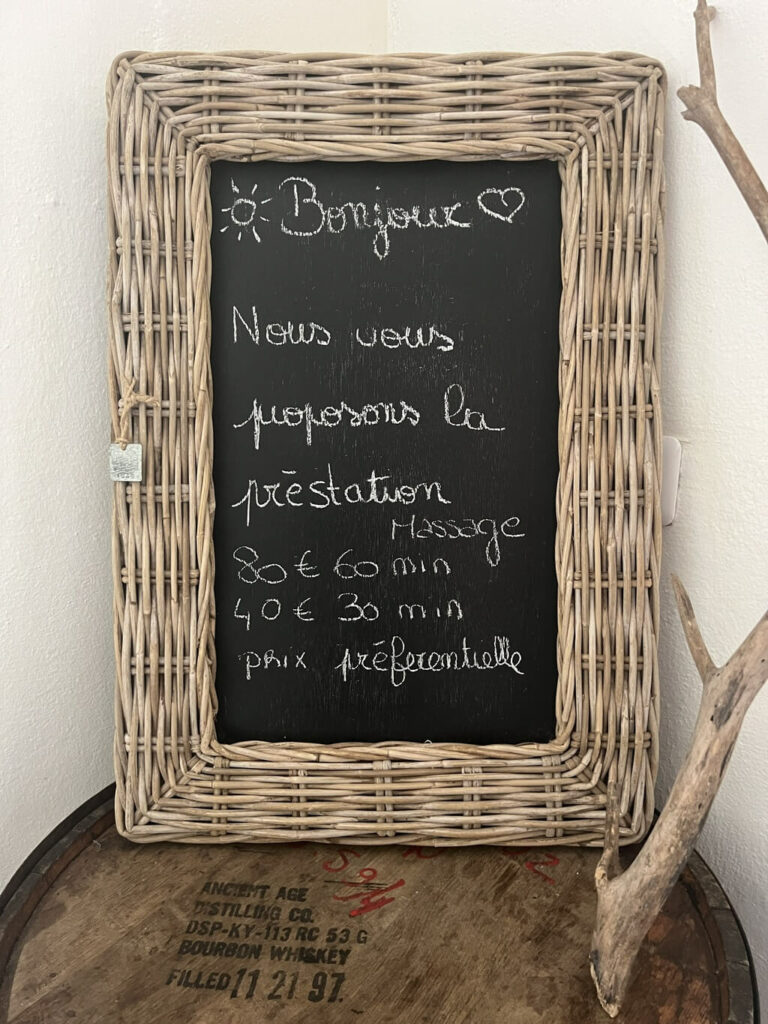 Bonjour
Nous vous
proposons la
préstation
Massage
80€ 60 min
40€ 30 min
prix préferentielle
ANCIENT AGE
DISTILLING CO.
DSP-KY-113 RC 53 G
BOURBON WHISKEY
FILLED 11 21 97.